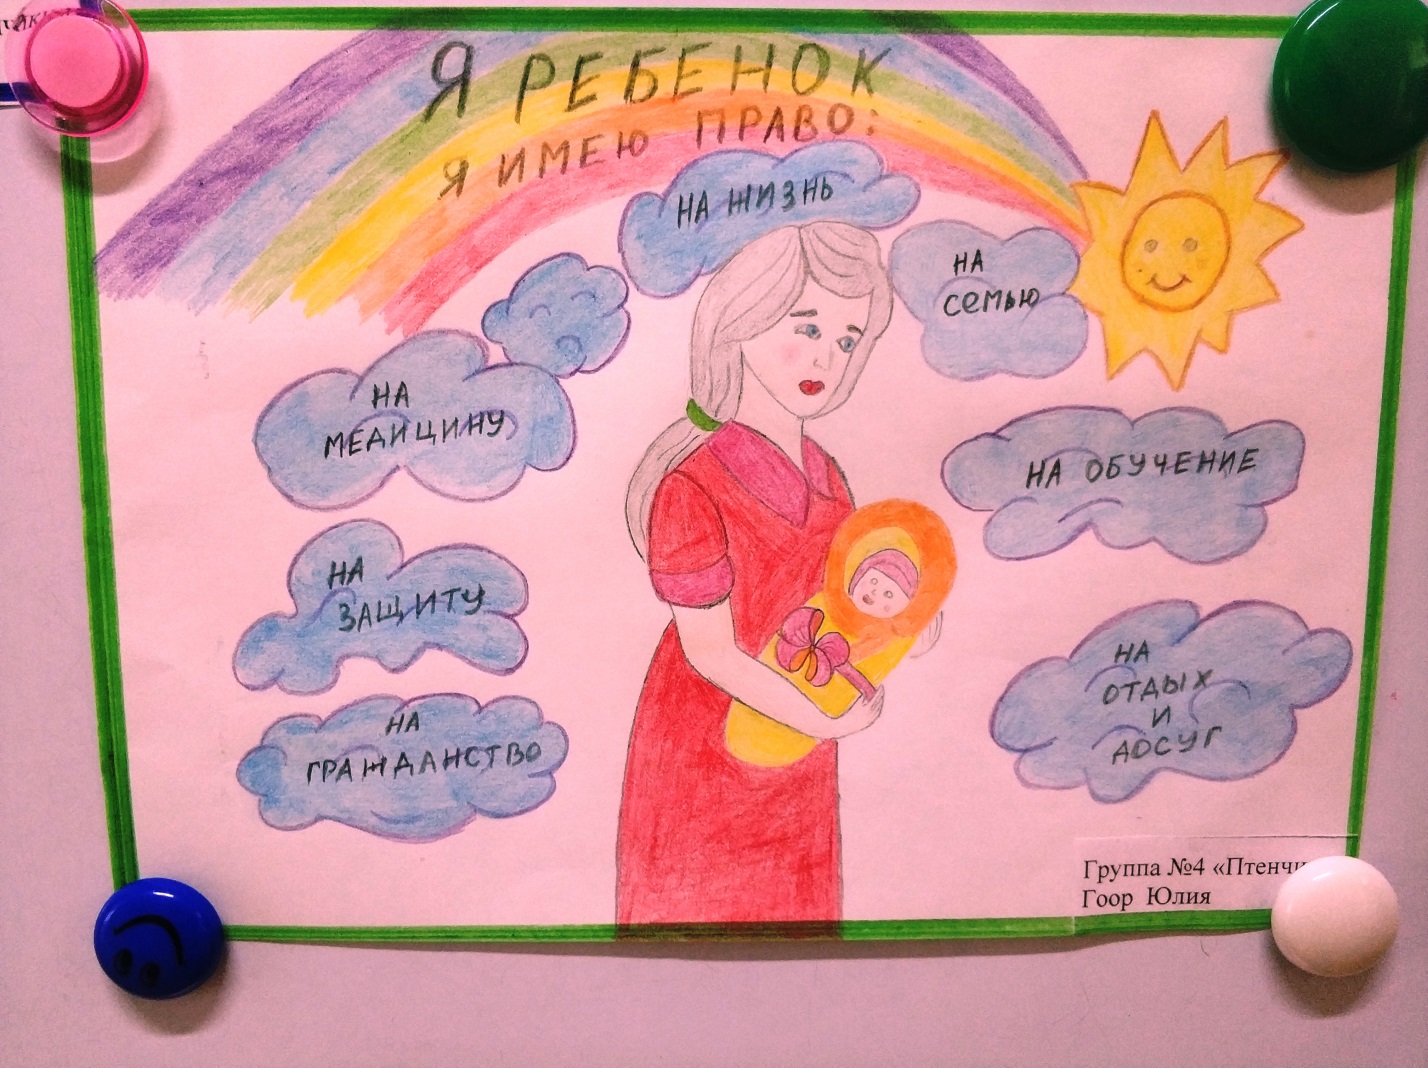 Я РЕБЕНОК
Я ИМЕЮ ПРАВО:
НА ЖИЗНЬ
НА
СЕМЬЮ
НА
МЕДИЦИНУ
НА ОБУЧЕНИЕ
НА
ЗАЩИТУ
НА
ОТДЫХ
И
ДОСУГ
НА
ГРАЖДАНСТВО
Группа №4
Гоор Юлия